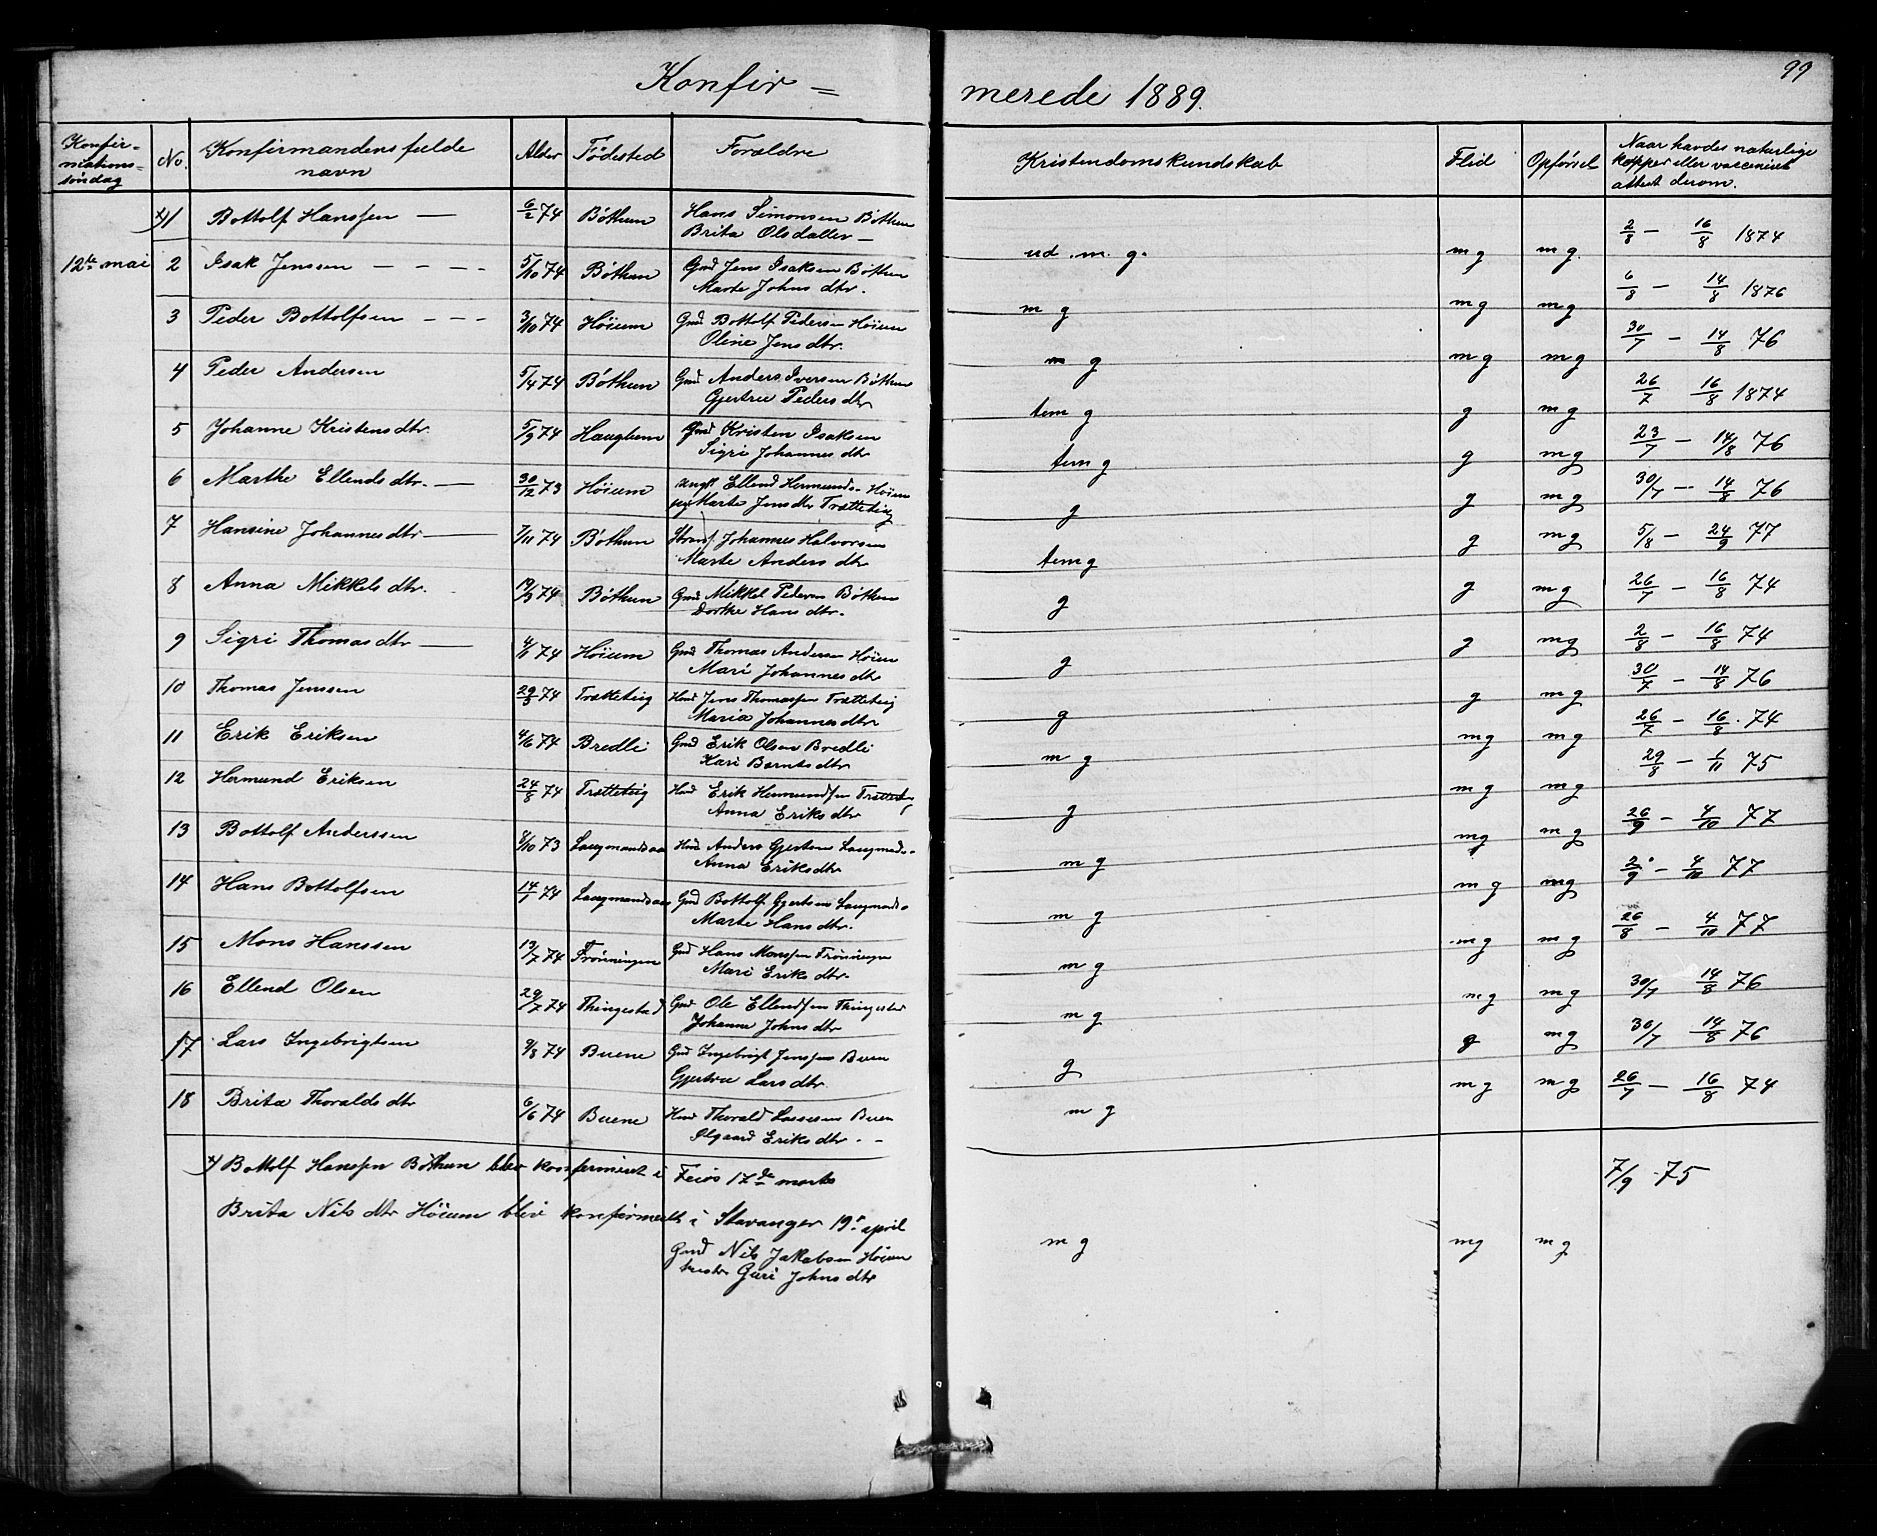 Konfir =
merede 1889.
99
Konfir-
mations-
søndag
No.
Konfirmandens fulde
navn
Alder
Fødested
Forældre
Kristendomskundskab
Flid
Opførsel
Naar havdes naturlige
kopper eller vaccineret
attest derom.
x) 1 Bottolf Hanssen — 6/2 74 Bøthun Hans Simonsen Bøthun
Brita Olsdatter —
ud. m. g. mg mg. 2/8 — 16/8 1874
12te mai 2 Isak Jenssen — — — 5/10 74 Bøthun Gmd Jens Isaksen Bøthun
Marte Johns dtr.
m g mg mg 6/8 — 14/8 1876
3 Peder Bottolfsen — — — 3/10 74 Høium Gmd Bottolf Pedersen Høium
Oline Jens dtr.
m g mg mg 30/7 — 14/8 76
4 Peder Andersen 5/4 74 Bøthun Gmd Anders Iversen Bøthun
Gjertrue Peders dtr
tem g g mg 26/7 16/8 1874
5 Johanne Kristens dtr. 5/9 74 Haughum Gmd Kristen Isaksen
Sigri Johannes dtr
tem g g mg 23/7 — 14/8 76
6 Marthe Ellends dtr. — 30/12 73 Høium ungk Ellend Hermunds. Høium
pig Marte Jens dtr Trætteteig
g g mg 30/7 — 14/8 76
7 Hansine Johannes dtr — 7/11 74 Bøthun Johannes Halvorsen
Marte Anders dtr
tem g g mg 5/8 — 24/9 77
8 Anna Mikkels dtr. 19/3 74 Bøthun Gmd Mikkel Pedersen Bøthun
Dorthe Hans dtr.
g g mg 26/7 — 16/8 74
9 Sigri Thomas dtr — 4/1 74 Høium Gmd Thomas Andersen Høium
Mari Johannes dtr
g g mg 2/8 — 16/8 74
10 Thomas Jenssen 29/8 74 Trætteteig Hmd Jens Thomassen Trætteteig
Maria Johannes dtr
g g mg 30/7 — 14/8 76
11 Erik Eriksen 4/6 74 Bredli Gmd Erik Olsen Bredli
Kari Bernts dtr
m g mg mg 26/7 — 16/8 74
12 Hermund Eriksen 24/8 74 Trætteteig Hmd Erik Hermundsen Trætteteig
Anna Eriks dtr
g mg mg 29/8 — 1/11 75
13 Bottolf Anderssen 4/10 73 Langmandsaa Hmd Anders Gjertsen Langmads.
Anna Eriksdtr
m g mg mg 26/9 — 4/10 77
14 Hans Bottolfsen 14/7 74 Langmandsaa Gmd Bottolf Gjertsen Langmads.
Marte Hans dtr.
m g mg mg 2/9 — 4/10 77
15 Mons Hanssen 19/7 74 Frønningen Gmd Hans Monssen Frønningen
Mari Eriks dtr.
m g mg mg 26/8 — 4/10 77
16 Ellend Olsen 29/7 74 Thingestad Gmd Ole Ellendsen Thingestad
Johanne Johns dtr
m g mg mg 30/7 14/8 76
17 Lars Ingebrigtsen 9/3 74 Buene Gmd Ingebrigt Jenssen Buen
Gjertrue Lars dtr.
g g mg 30/7 14/8 76
18 Brita Thoralds dtr 6/6 74 Buene Hmd Thorald Lassesen Buen
Olgaard Eriks dtr. —
m g mg mg 26/7 — 16/8 74
x) Bottolf Hanssen Bøthun blev konfirmeret i Feios 17de marts
7/9 75
Brita Nils dtr Høium blev konfirmeret i Stavanger 19de april
Gmd Nils Jakobsen Høium
hustr Guri Johns dtr
m g mg mg